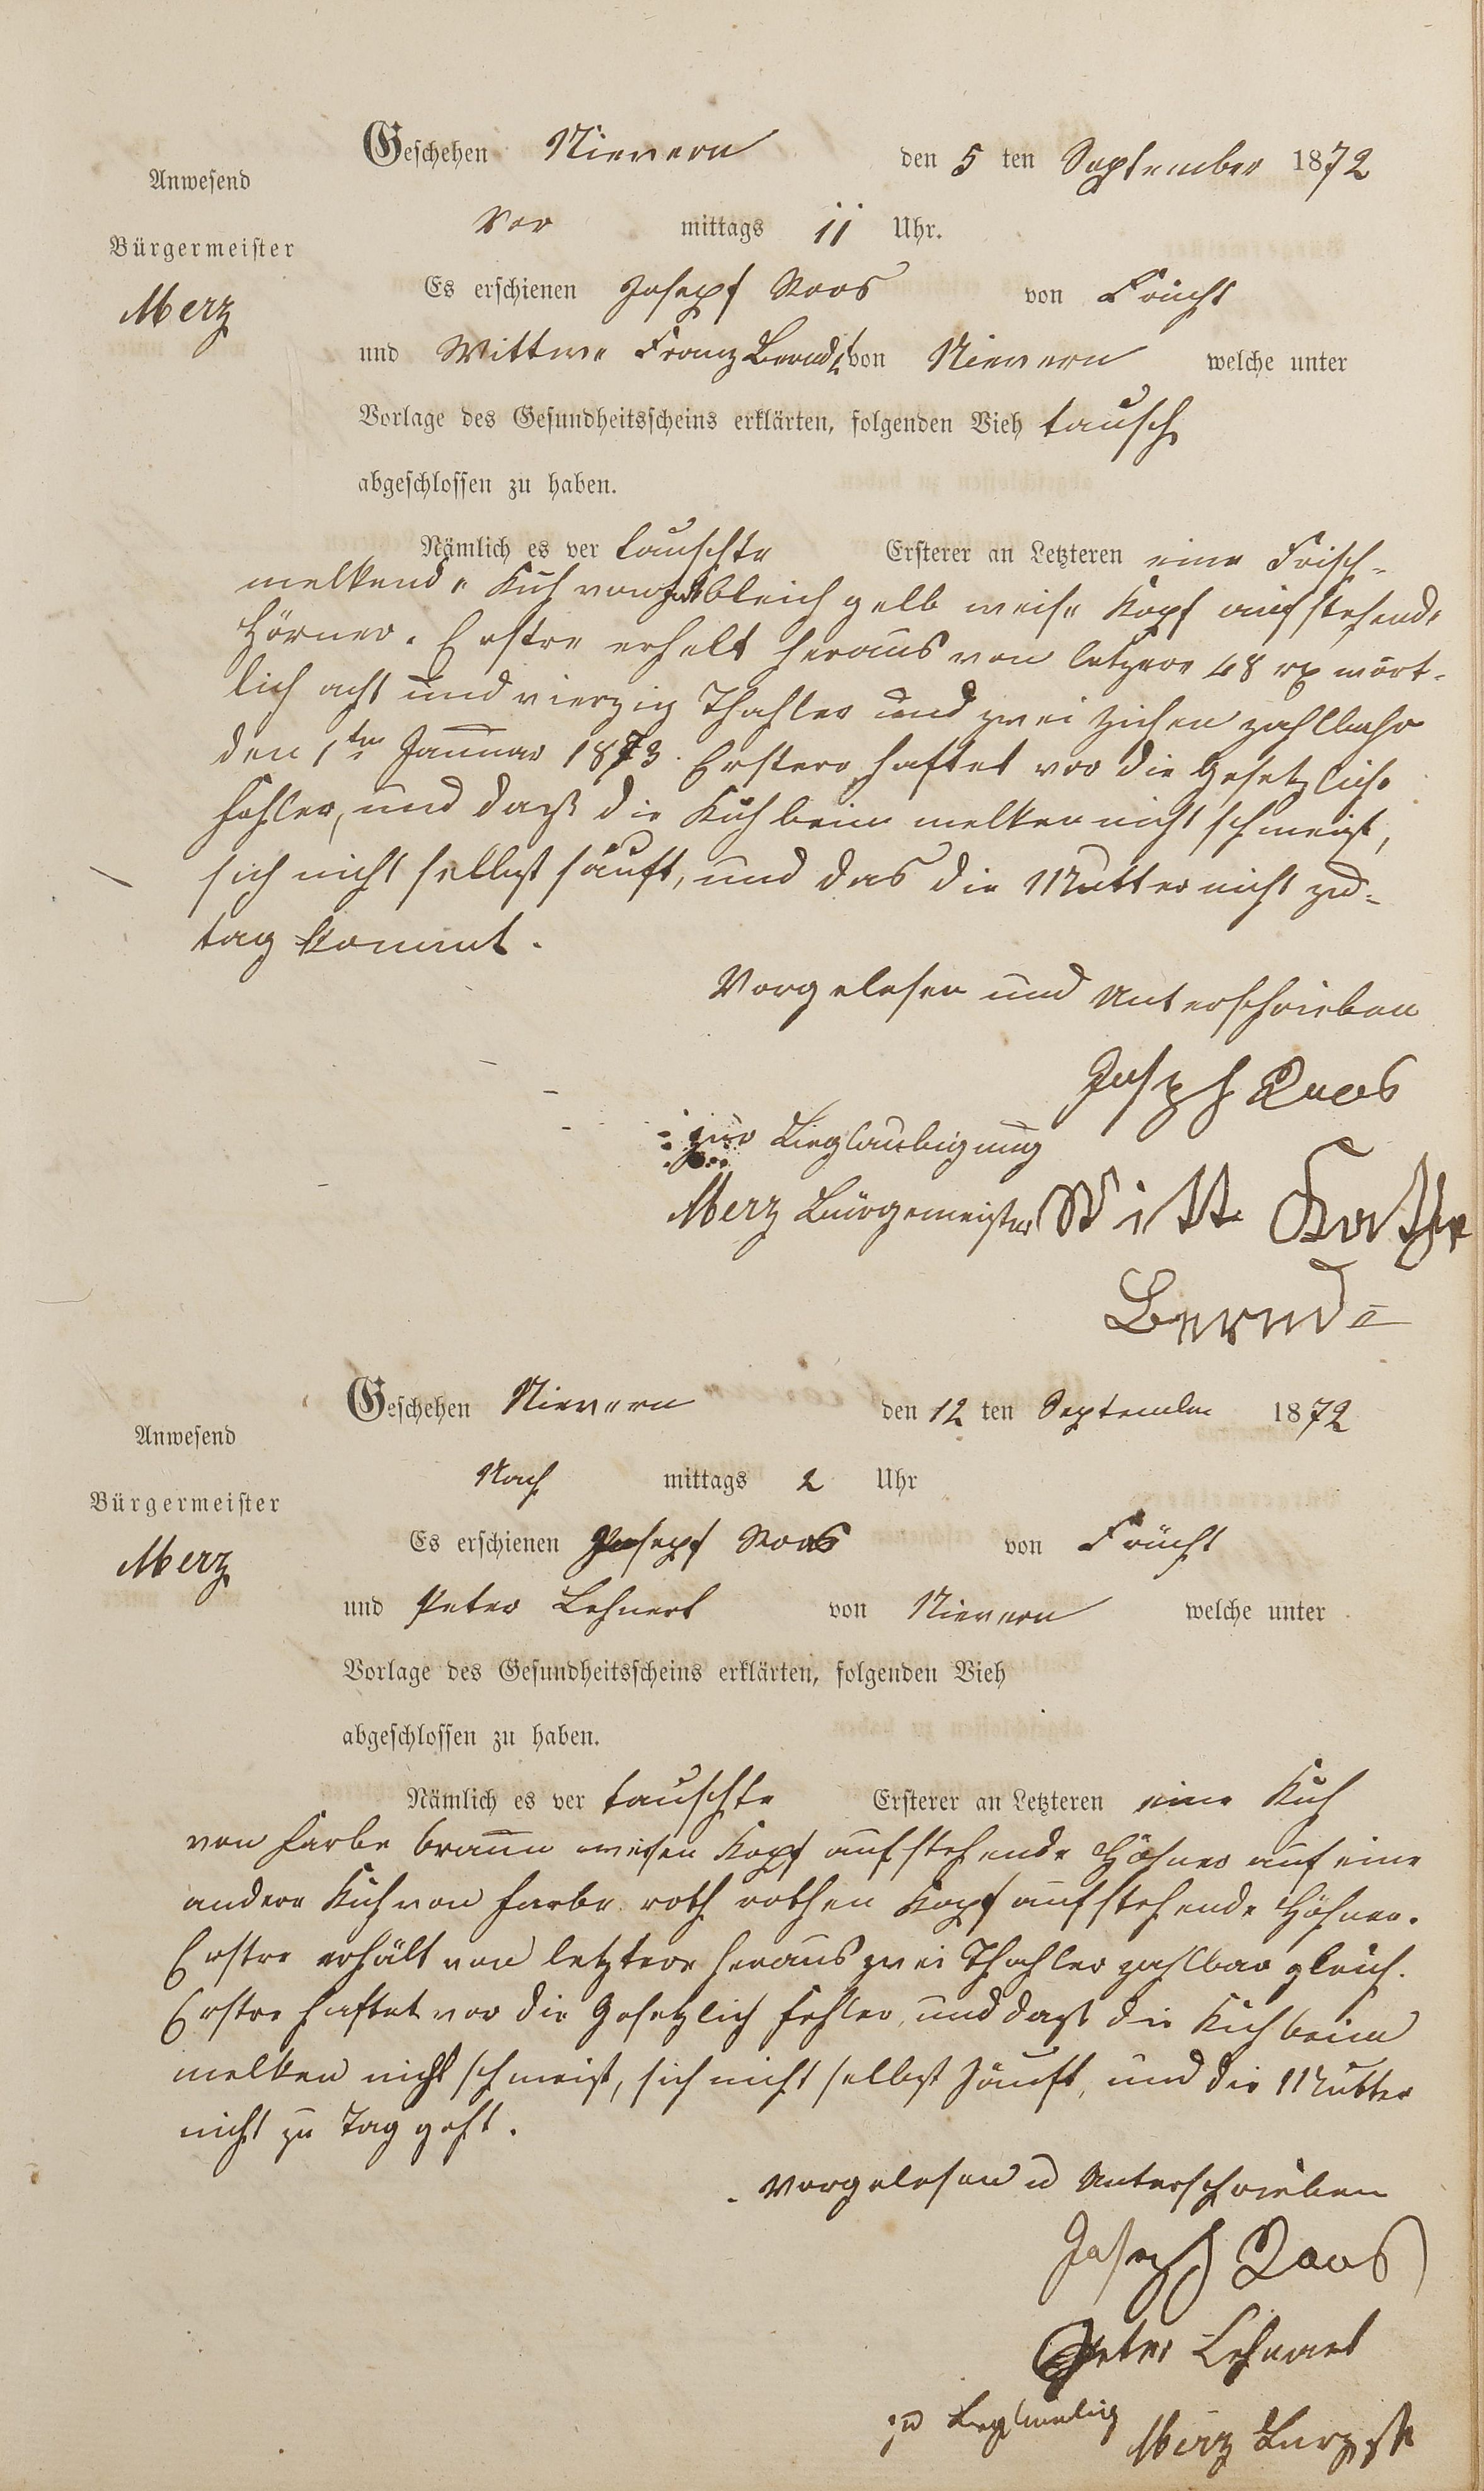 Geschehen Nievern den 5 ten September 1872
Anwesend
Vor mittags 11 Uhr.
Bürgermeister
Es erschienen Josepf Roos von Frücht
Merz
und Wittwe Franz Berndt von Nievern welche unter
Vorlage des Gesundheitsscheins erklärten, folgenden Vieh tausch
abgeschlossen zu haben.
Nämlich es ver tauschte Ersterer an Letzteren eine Frisch-
melkende Kuh von bleich gelb weise Kopf aufstehende
Hörner. Erstre erhelt heraus von letzere 48 rx wört-
lich acht und vierzig Thahler und zwei Zichen zahlbahr
den 1ten Januar 1873. Erstere haftet vor die Gesetzliche
Fehler, und daß die Kuh beim melken nicht schmeißt,
sich nicht selbst säuft, und das die Mutter nicht zu-
tag kommt.
Vorgelesen und Unterschrieben
Joseph Roos
zur Beglaubigung
Merz Bürgemeister Witt Kathr
Bernd
Geschehen Nievern den 12 ten September 1872
Anwesend
Nach mittags 2 Uhr
Bürgermeister
Es erschienen Josepf Roos von Frücht
Merz
und Peter Lehnert von Nievern welche unter
Vorlage des Gesundheitsscheins erklärten, folgenden Vieh
abgeschlossen zu haben.
Nämlich es ver tauschte Ersterer an Letzteren eine Kuh
von Farbe braun weisen Kopf aufstehende Höhner auf eine
andere Kuh von Farbe roth rothen Kopf aufstehende Höhner.
Erstre erhält von letztere heraus zwei Thahler zahlbar gleich.
Erstre haftet vor die Gesetzlich Fehler, und daß die Kuh beim
melken nicht schmeist, sich nicht selbst säuft, und die Mutter
nicht zu Tag geht.
Vorgelesen u Unterschrieben
Joseph Roos
Peter Lehnert
zu
Merz Burgst